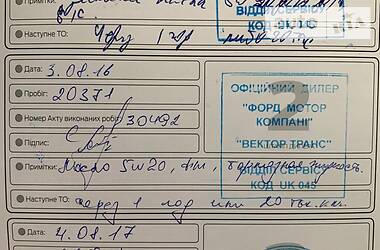 ВІДДІЛ СЕРВІСУ
КОД UK 045
Наступне ТО: Через 1 год
Дата: 3.08.16
Пробіг: 20371
Номер Акту виконаних робіт: 30492
Підпис:
Примітки: Масло 5w20, ф/м, тормозная жидкость.
Наступне ТО: через 1 год или 20 тыс. км.
ОФІЦІЙНИЙ ДИЛЕР
"ФОРД МОТОР
КОМПАНІ"
"ВЕКТОР ТРАНС"
ВІДДІЛ СЕРВІСУ
КОД UK 045
Дата: 4.08.17